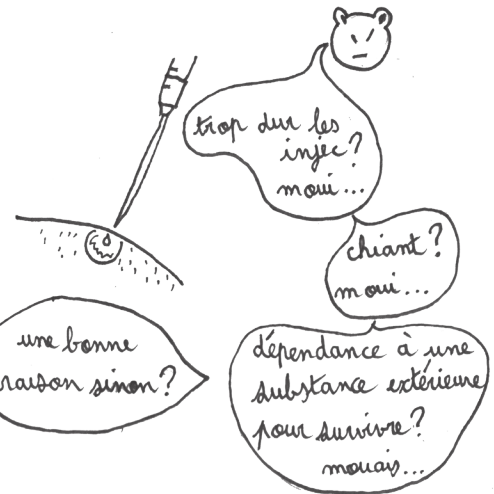 trop dur les
injec?
moui...
chiant?
moui...
une bonne
raison sinon?
dépendance à une
substance extérieure
pour survivre?
mouais...